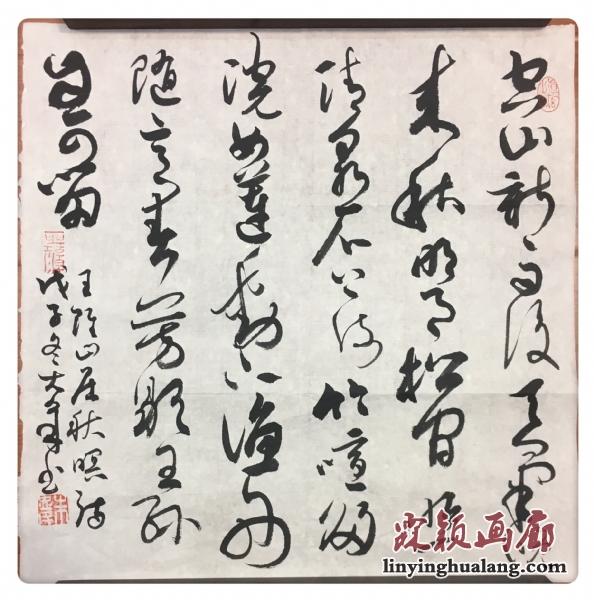 空山新雨後天氣晚
来秋明月松间照
清泉石上流竹喧归
浣女莲动下渔舟
随意春芳歇王孙
自可留
王维山居秋暝诗
戊子冬大年书
颖画廊
linyinghualang.com